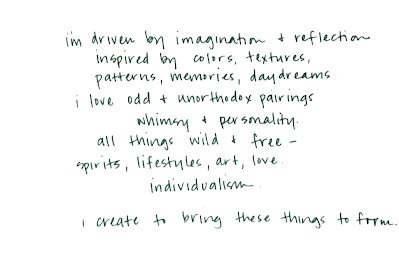 i'm driven by imagination + reflection
inspired by colors, textures,
patterns, memories, daydreams.
i love odd + unorthodox pairings
whimsy + personality.
all things wild + free -
spirits, lifestyles, art, love.
individualism.
i create to bring these things to form.